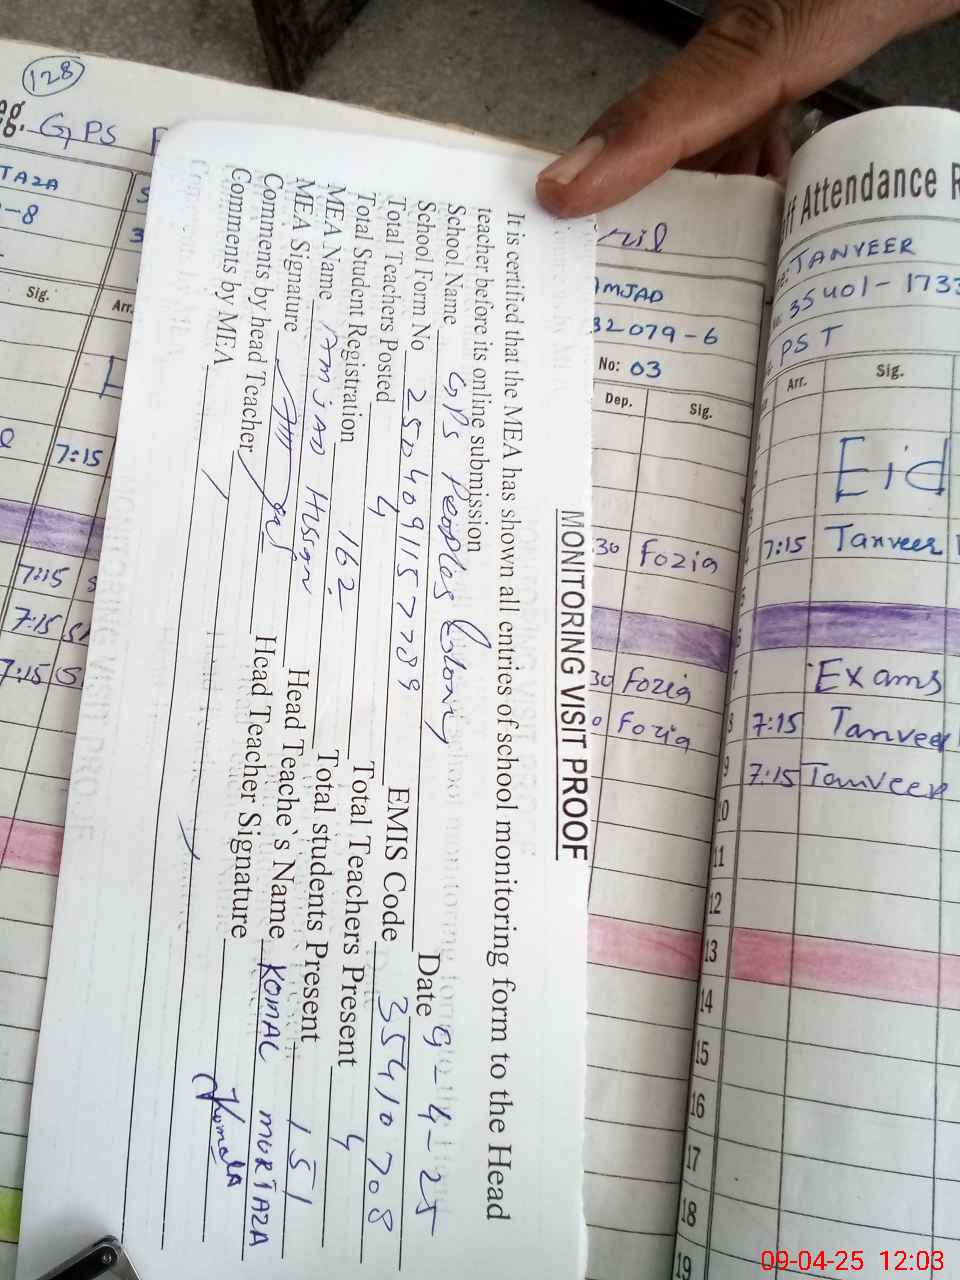 128
eg. GPS
TAZA
-8
Sig.
Arr.
7:15
7:15
7:15
7:15
MONITORING VISIT PROOF
It is certified that the MEA has shown all entries of school monitoring form to the Head
teacher before its online submission
School Name GPS Peoples Colony Date 9-4-25
School Form No 2504091157789 EMIS Code 35410708
Total Teachers Posted 4 Total Teachers Present 4
Total Student Registration 162 Total students Present 151
MEA Name AMJAD Hussan Head Teache`s Name KOMAL MURTAZA
MEA Signature Head Teacher Signature Komal
Comments by head Teacher
Comments by MEA
AMJAD
32079-6
No: 03
Dep. Sig.
30 Fozia
30 Fozia
0 Fozia
ff Attendance R
TANVEER
35401-1733
PST
Arr. Sig.
Eid
7:15 Tanveer
7 Exams
8 7:15 Tanveer
9 7:15 Tanveer
10
11
12
13
14
15
16
17
18
19
09-04-25 12:03